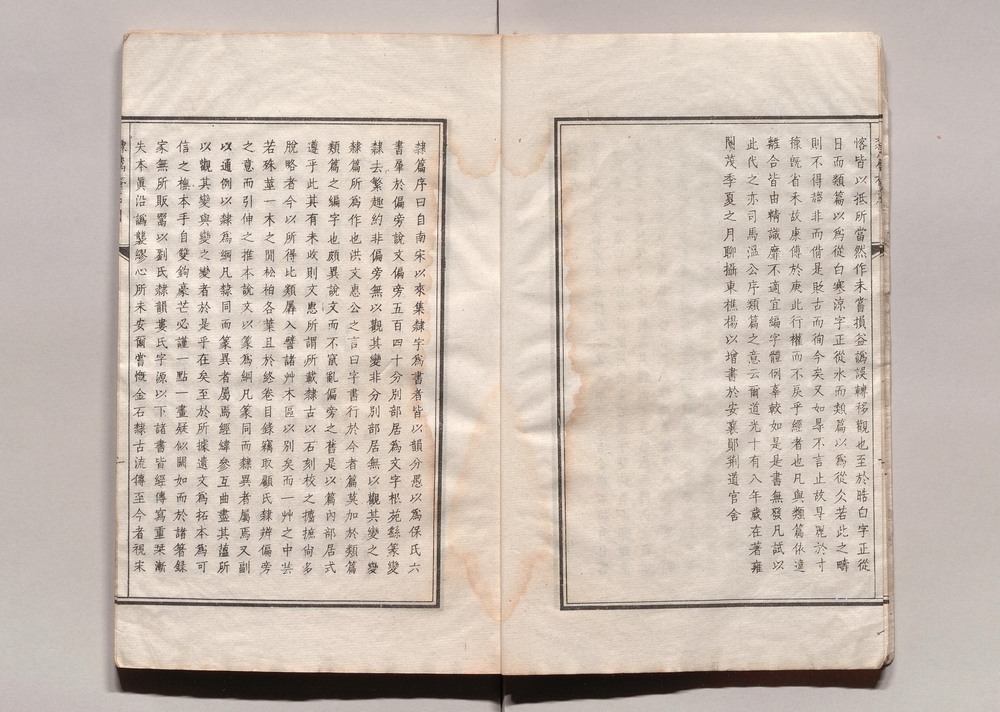 皆以抵所當然作未嘗損益譌誤轉移觀也至於晧白字正從
日而類篇以爲從白寒涼字正從水而類篇以爲從仌若此之疇
則不得 非而偝是貶古而徇今矣又如㝵不言止故㝵 於寸
旣省禾故康傅於庚此行權而不戾乎經者也凡與類篇依違
離合皆由精識靡不適宜編字體例辜較如是是書無發凡試以
此代之亦司馬溫公序類篇之意云爾道光十有八年歲在著雍
閹茂季夏之月聊攝東樵楊以增書於安襄鄖荊道官舍
隸篇序曰自南宋以來集隸字爲書者皆以韻分愚以爲保氏六
書屖於偏旁說文偏旁五百四十分別部居爲文字根苑繇篆變
隸去繁趣約非偏旁無以觀其變非分別部居無以觀其變之變
隸篇所爲作也洪文惠公之言曰字書行於今者篇莫加於類篇
類篇之編字也頗異說文而不竄亂偏旁之舊是以篇內部居式
遵乎此其有未收則文惠所謂所載隸古以石刻校之擕摭尙多
脫略者今以所得比類羼入譬諸艸木區以別矣而一艸之中
若殊莖一木之閒松柏各葉且於終卷目錄竊取顧氏隸辨偏旁
之意而引伸之推本說文以篆爲綱凡篆同而隸異者屬焉又副
以通例以隸爲綱凡隸同而篆異者屬焉經緯參互曲盡其蕴所
以觀其變與變之變者於是乎在矣至於所據遺文爲拓本爲可
信之樵本手自雙鉤豪芒必謹一點一畫疑似闕如而於諸箸錄
家無所販鬻以劉氏隸韻婁氏字源以下諸書皆經傳寫重栞漸
失本眞沿譌襲繆心所未安爾嘗慨金石隸古流傳至今者視宋